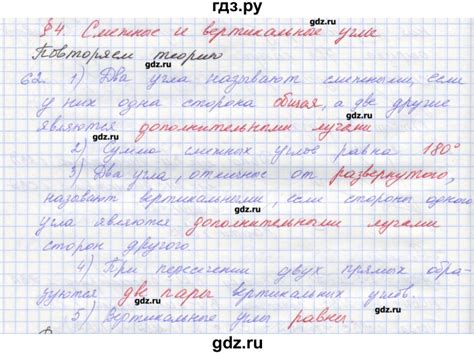 гдз.ру
§4. Смежные и вертикальные углы
Повторяем теорию
62. 1) Два угла называют смежными, если
у них одна сторона общая, а две другие
являются дополнительными лучами
2) Сумма смежных углов равна 180°
3) Два угла, отличные от развернутого,
называют вертикальными, если стороны одного
угла являются дополнительными лучами
сторон другого
4) При пересечении двух прямых обра-
зуются две пары вертикальных углов.
5) Вертикальные углы равны.